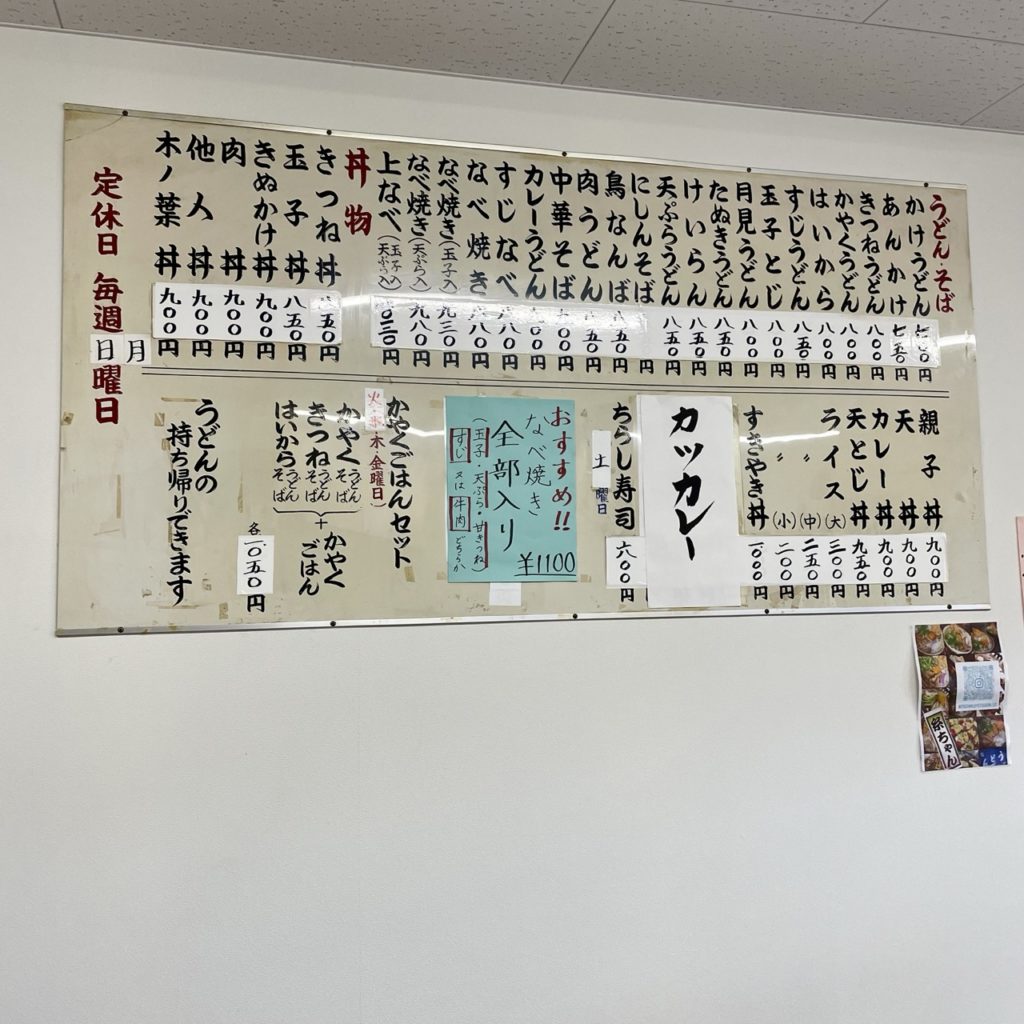 うどん・そば
かけうどん 円
あんかけ 七五〇円
きつねうどん 八〇〇円
かやくうどん 八〇〇円
はいから 八〇〇円
すじうどん 八五〇円
玉子とじ 八〇〇円
月見うどん 八〇〇円
たぬきうどん 八五〇円
けいらん 八五〇円
天ぷらうどん 八五〇円
にしんそば 円
鳥なんば 八五〇円
肉うどん 円
中華そば 円
カレーうどん 円
すじなべ 円
なべ焼き 円
なべ焼き(玉子入) 九三〇円
なべ焼き(天ぷら入) 九八〇円
上なべ(玉子入 天ぷら入) 円
丼物
きつね丼 八五〇円
玉子丼 八五〇円
きぬかけ丼 九〇〇円
肉丼 九〇〇円
他人丼 九〇〇円
木ノ葉丼 九〇〇円
定休日 毎週 月日曜日
親子丼 九〇〇円
天丼 九〇〇円
カレー丼 九〇〇円
天とじ丼 九五〇円
ライス(大) 三〇〇円
〃(中) 二五〇円
〃(小) 二〇〇円
すきやき丼 一〇〇〇円
カツカレー
ちらし寿司 六〇〇円
土曜日
おすすめ!!
なべ焼き
全部入り
¥1100
(玉子・天ぷら・甘きつね)
すじ 又は 牛肉 どちらか
かやくごはんセット
火・水・木・金曜日)
かやく うどん そば
きつね うどん そば
はいから うどん そば
+
かやくごはん
各一〇五〇円
うどんの
持ち帰りできます